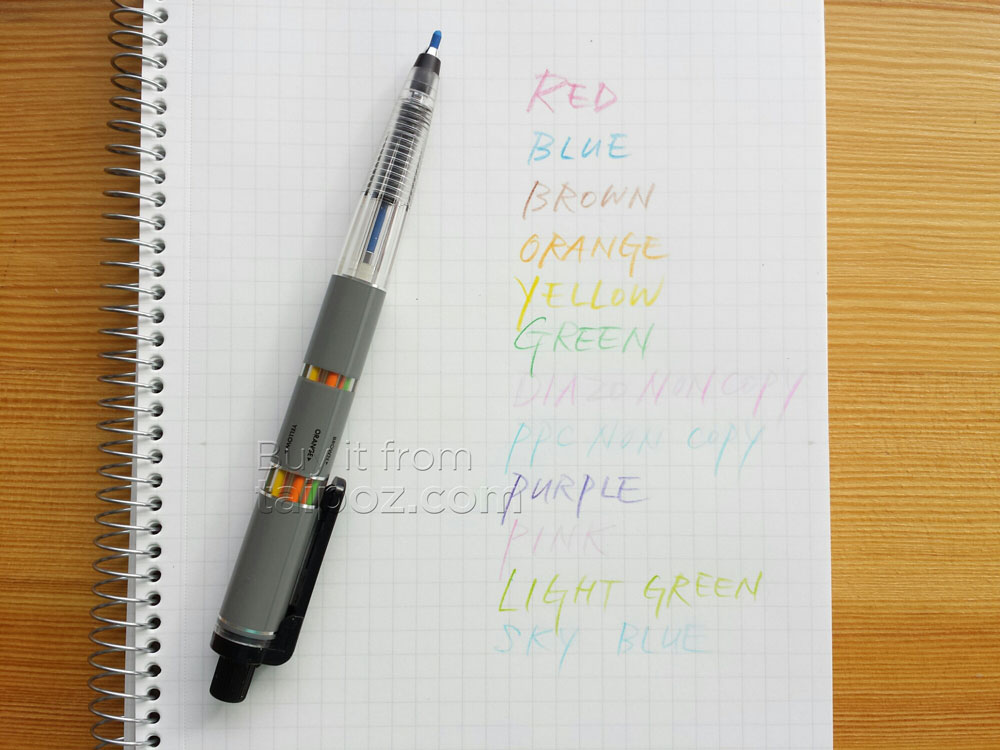 RED
BLUE
BROWN
ORANGE
YELLOW
GREEN
DIAZO NON COPY
PPC NON COPY
PURPLE
PINK
LIGHT GREEN
SKY BLUE
ORANGE
YELLOW
Buy it from
taipoz.com